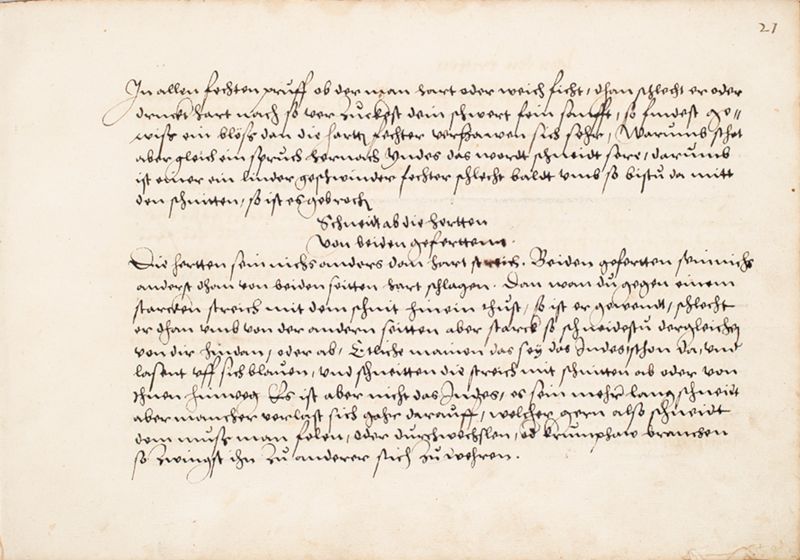 21
In allen fechten prüff ob der man hart oder weich ficht, dhan schlecht er oder
druckt hart nach so ver zuckest dein schwert fein sanfft, so findest ge=
wiss ein blöss dan die hartt fechter verhawen sich sehr, Warumb schet
aber gleich ein spruch hernach Yndes das wordt schneidt sere, darumb
ist einer ein linder geschwinder fechter schlecht baldt umb so bistu da mitt
den schnitten, so ist es gebroch
Schneidt ab die hertten
von beiden geferttenn.
Die hertten sein nichs anders dan hart streich. Beiden gefertten sein nichs
anderst dhan von beiden seitten hart schlagen. Dan wan du gegen einem
starcken streich mit dem schnit hinein thust, so ist er gewendt, schlecht
er dhan umb von der andern seitten aber starck so schneidestu dergleichen
von dir hindan, oder ab, Etliche mainen das sey das Indes schon da, und
lasent uff sich blauen, und schneitten die streich mit schnitten ab oder von
ihnen hinweg Es ist aber nicht das Indes, es sein mehr lang schneidt
aber mancher verlast sich gahr darauff, welcher gern also schneidt
dem muss man felen, oder durchwechslen, od krumphaw brauchen
so zwingst ihn zu anderer sich zu wehren.